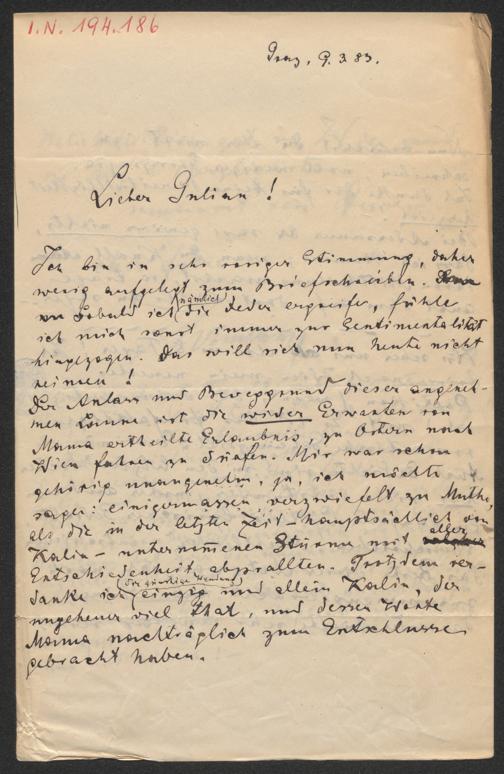 I.N. 194.186
Graz, 9.3.83.
Lieber Gulian!
Ich bin in sehr rosiger Stimmung, daher
wenig aufgelegt zum Briefschreiben. Denn
Sobald ich nämlich die Feder ergreife, fühle
ich mich sonst immer zur Sentimentalität
hingezogen. Das will sich nun heute nicht
reimen!
Der Anlass und Beweggrund dieser angeneh-
men Laune ist die wider Erwarten von
Mama ertheilte Erlaubnis, zu Ostern nach
Wien fahren zu dürfen. Mir war schon
gehörig unangenehm, ja, ich möchte
sagen: einigermassen verzweifelt zu Muthe,
als die in der letzten Zeit – hauptsächlich von
Kalin – unternommenen Stürme mit aller
Entschiedenheit abprallten. Trotzdem ver-
danke ich die günstige Wendung einzig und allein Kalin, der
ungeheuer viel that, und dessen Worte
Mama nachträglich zum Entschlusse
gebracht haben.